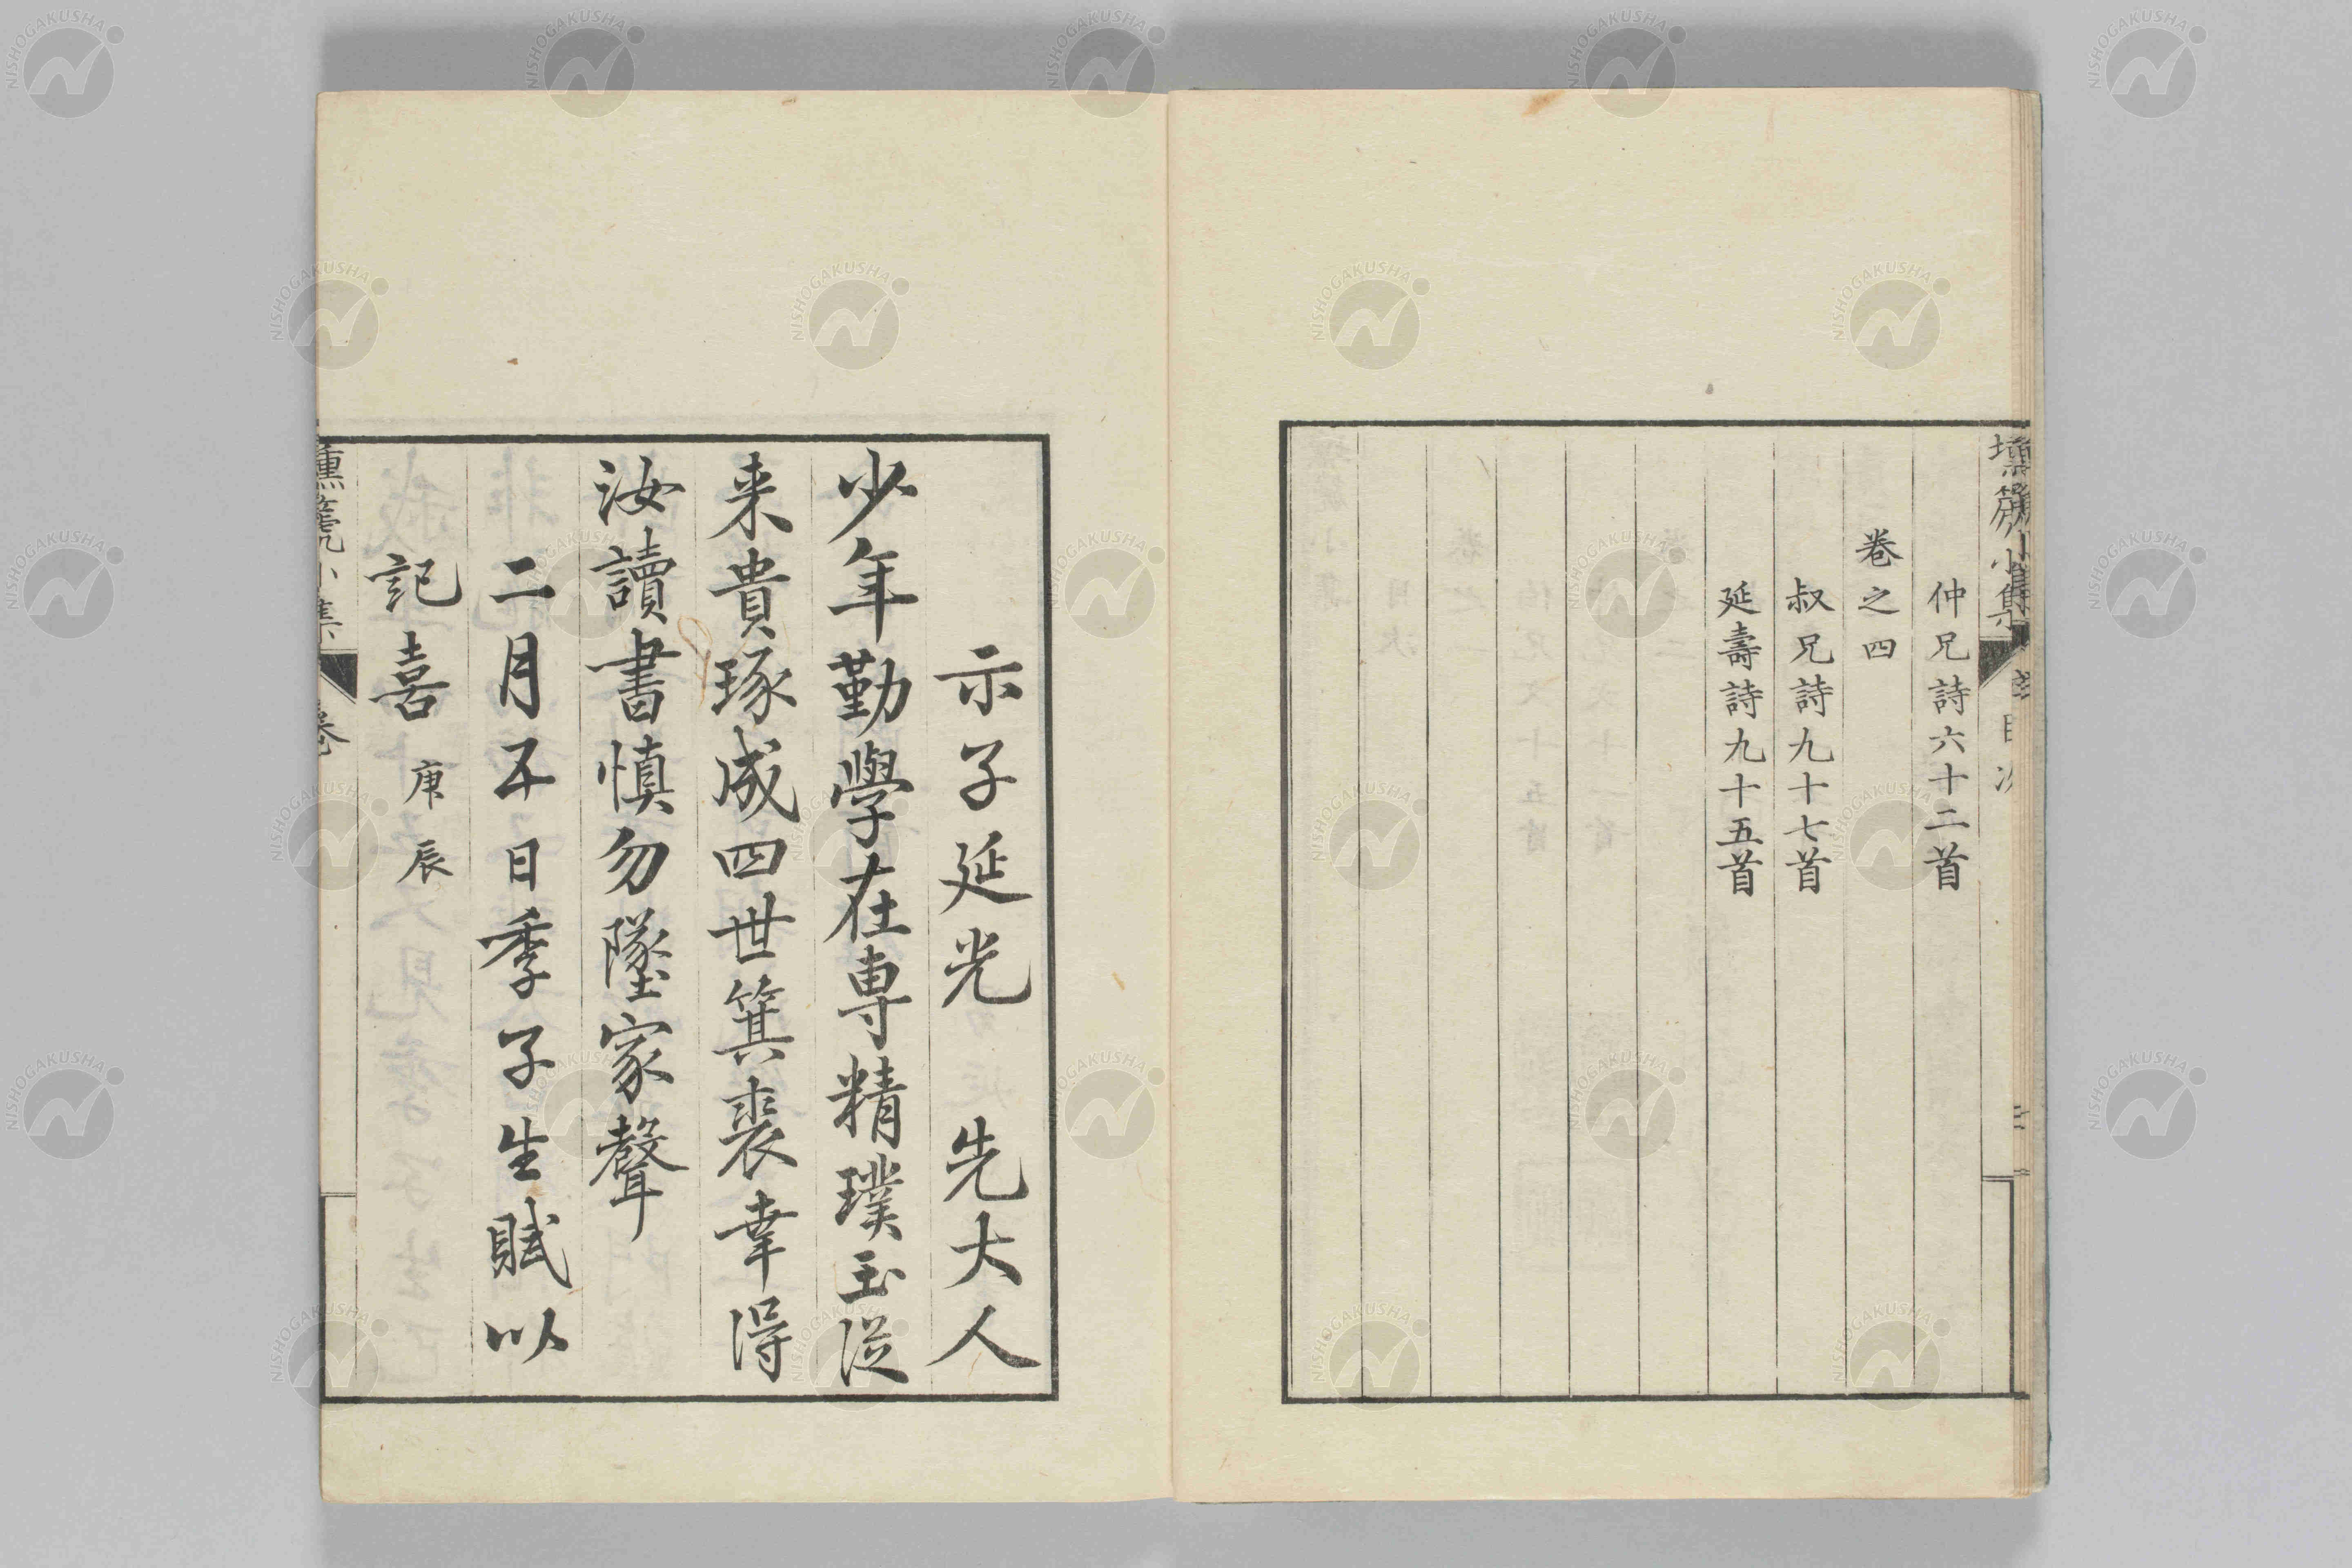 仲兄詩六十二首
卷之四
叔兄詩九十七首
延壽詩九十五首
示子延光　先大人
少年勤學在専精璞玉從
来貴琢成四世箕裘幸得
汝讀書慎勿墜家聲
二月五日季子生賦以
記喜 庚辰
NISHOGAKUSHA